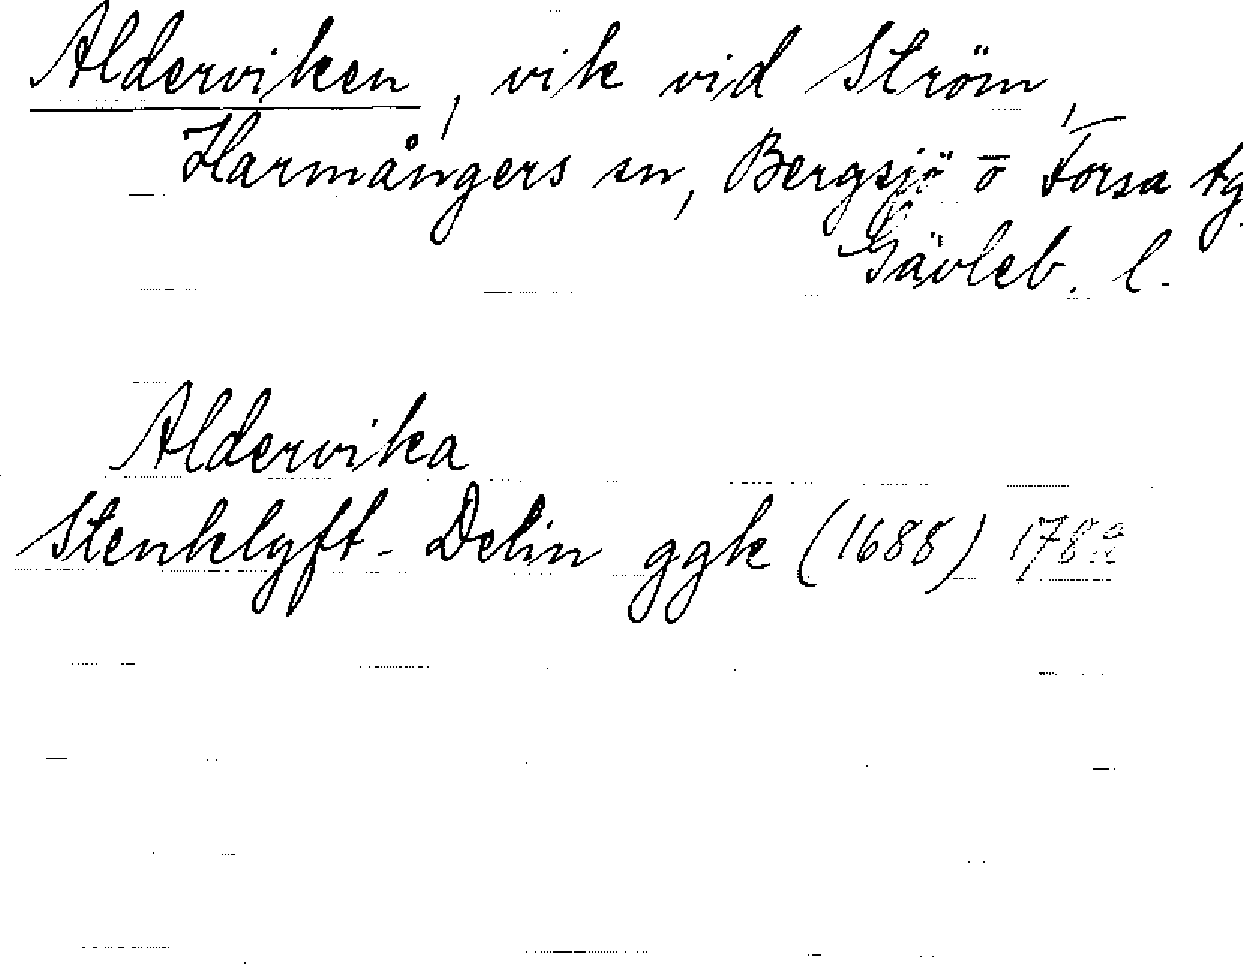 Alderviken, vik vid Ström,
Harmångers sn, Bergsjö o Forsa tg.
Gävleb. l.
Aldervika
Stenklyft-Delin ggk (1688)